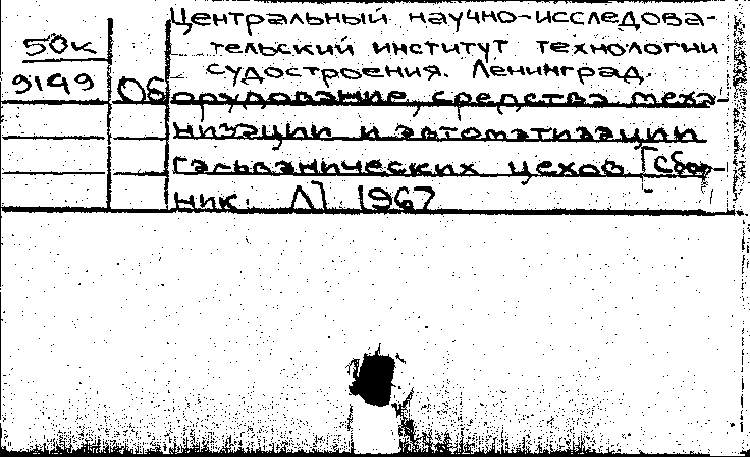 Центральный научно-исследова-
50к тельский институт технологии
судостроения. Ленинград.
9149 Оборудование, средства меха-
низации и автоматизации
гальванических цехов [Сбор-
ник. Л] 1967